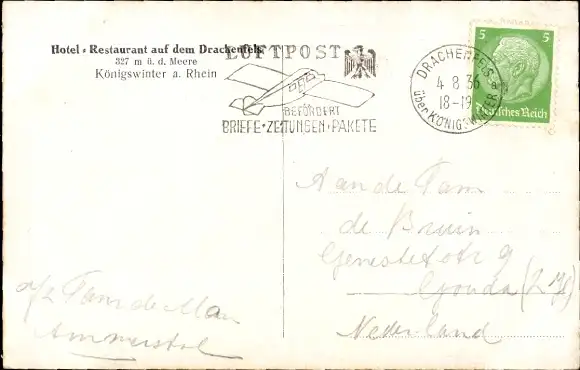 Hotel-Restaurant auf dem Drachenfels
327 m ü. d. Meere
Königswinter a. Rhein
LUFTPOST
BEFÖRDERT
BRIEFE·ZEITUNGEN·PAKETE
DRACHENFELS
4 8 36
18-19
über KÖNIGSWINTER
5 5
Deutsches Reich
Aan de Fam
de Bruin
Genestetstr 9
Gouda (Z.H.)
Nederland
a/z Fam de Man
Ammerstol